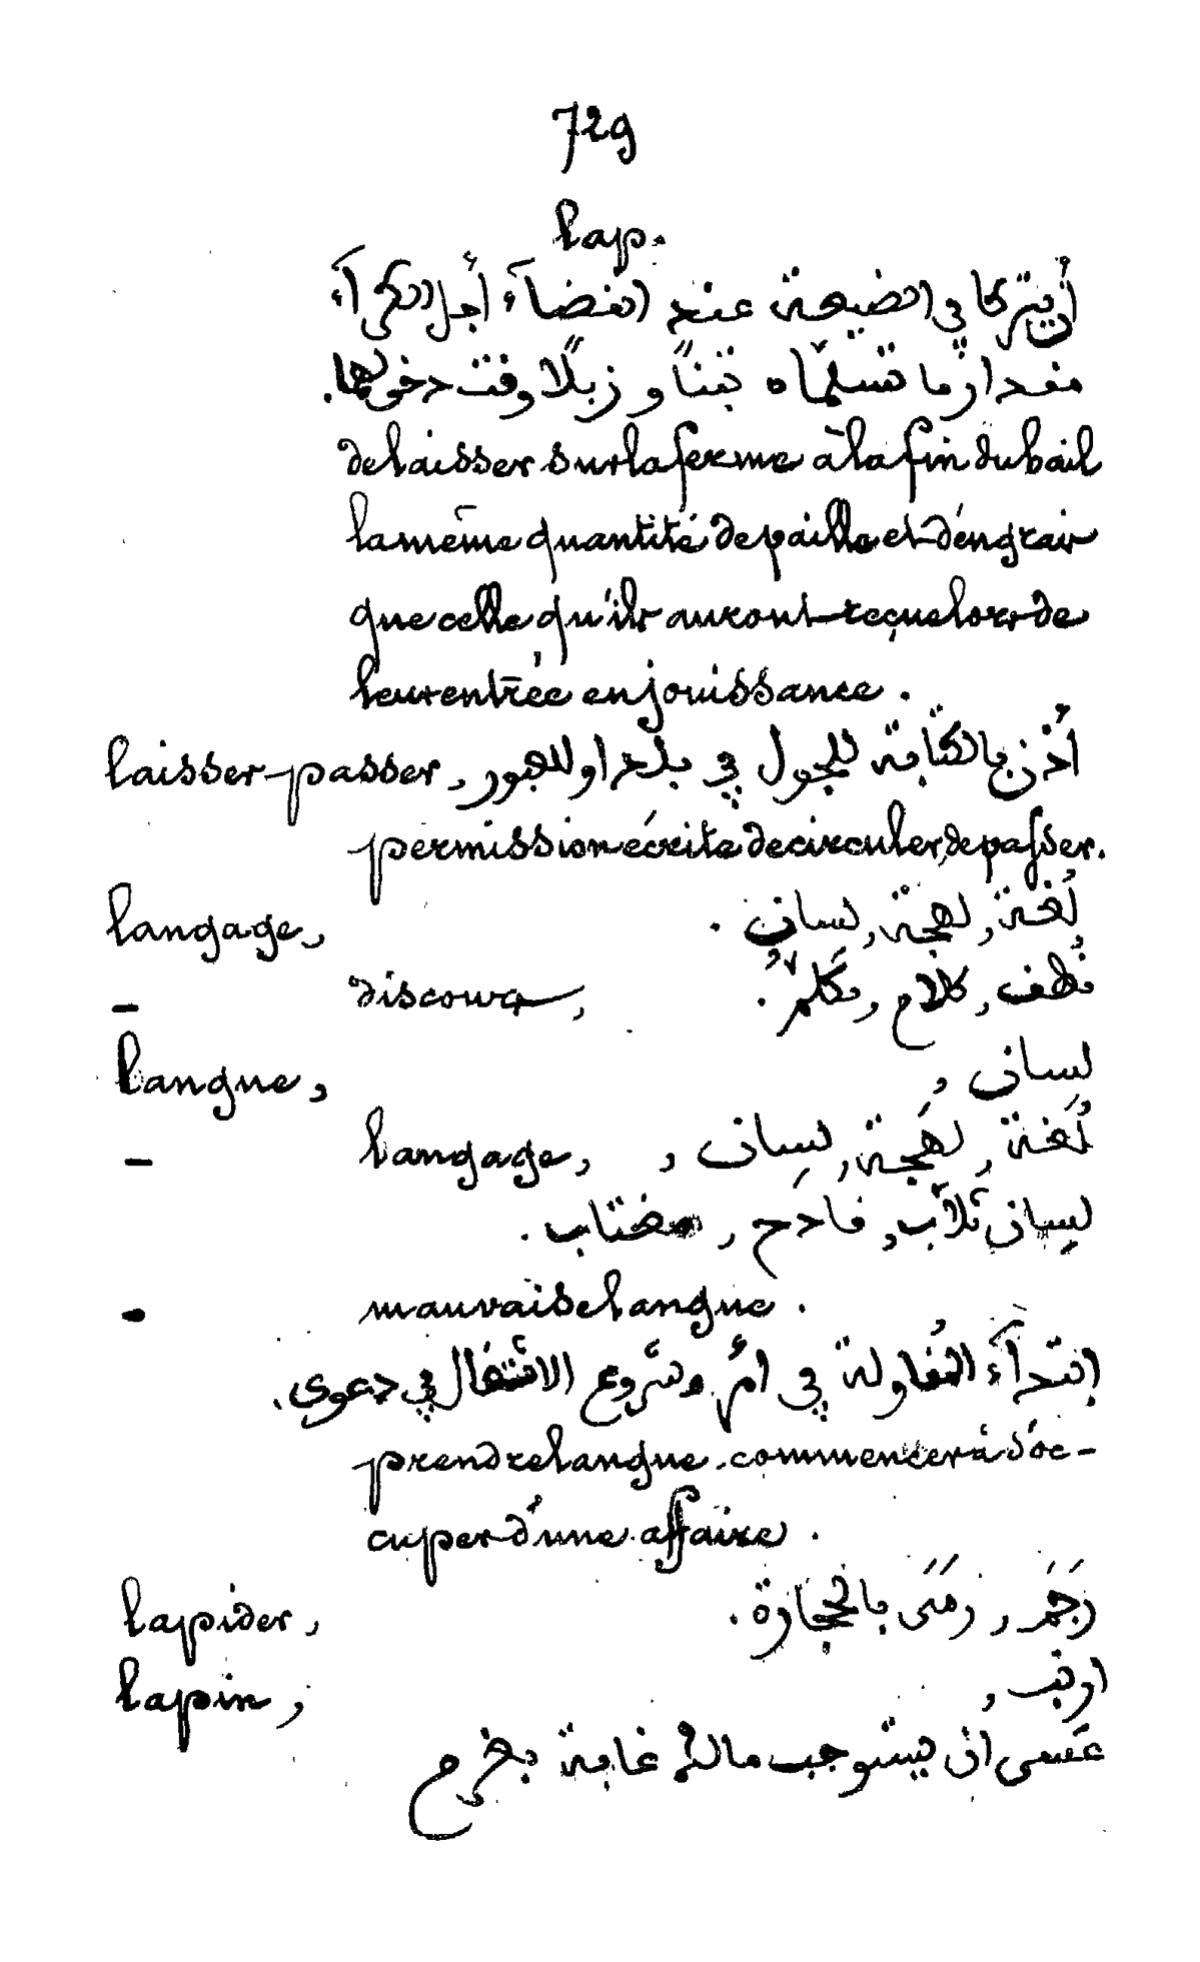 729
lap.
أن يتركا في الضيعة عند انقضآء أجل الكرآء
مقدار ما تسلّماه تبناً و زبلًا وقت دخولهما.
de laisser sur la ferme à la fin du bail
la même quantité de paille et d'engrais
que celle qu'ils auront reçue lors de
leur entrée en jouissance.
laisser-passer, أذن بالكتابة للجول في بلد او للعبور
permission écrite de circuler, de passer.
langage, لُغة, لهجة, لسان.
— discours, نُطف, كلام, تكلّمُ.
langue, لسان,
— langage, لُغة, لهَجة, لِسان,
لسِان ثَلاّب, فادح, مغتاب.
— mauvaise langue.
اِبتدآء المُفاولة في امر وشروع الاشتغال في دعوى.
prendre langue. commencer à s'oc-
cuper d'une affaire.
lapider, رَجَمَ, رَمَى بالحجارة.
lapin, ارنب,
عَسى أن يستوجب مالك غابة يخرج